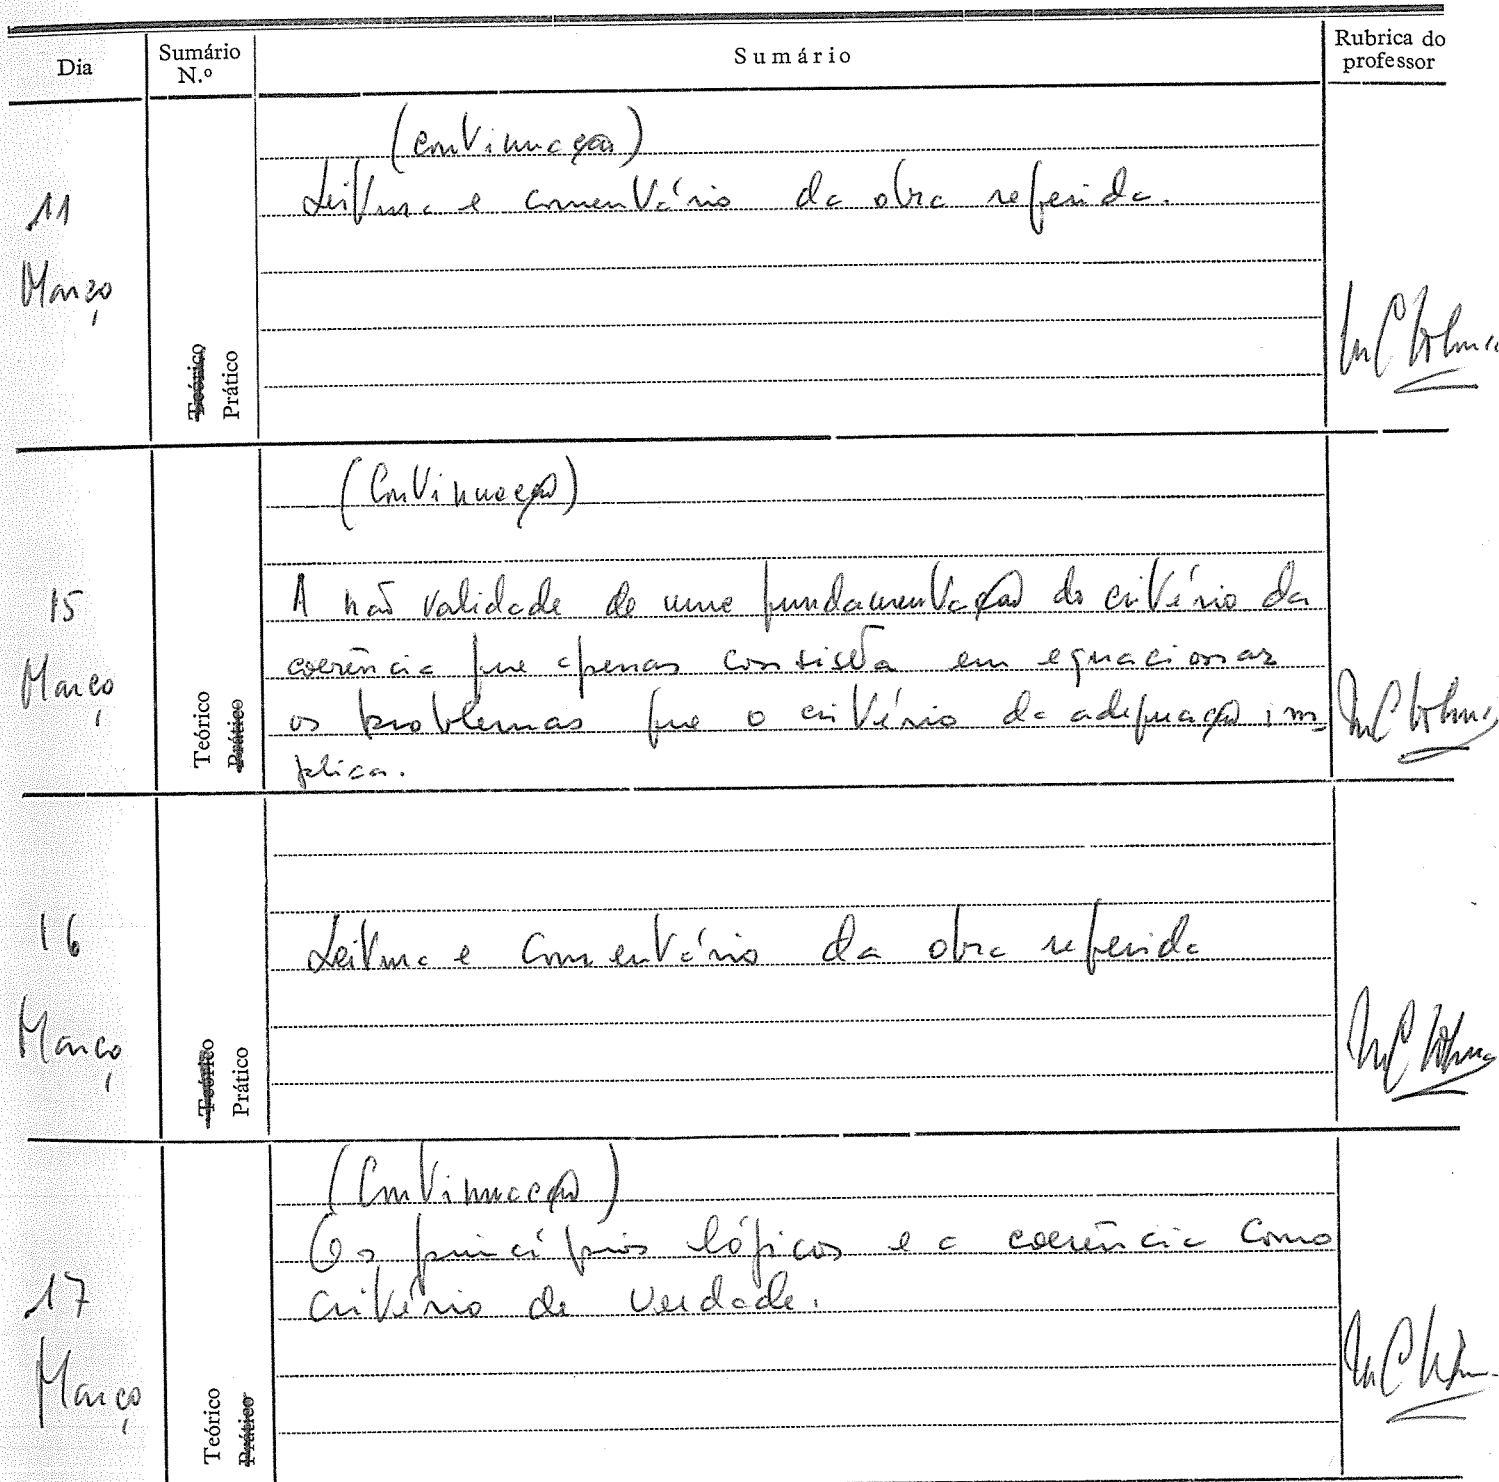 Dia
Sumário N.º
Sumário
Rubrica do professor
11
Março
Teórico
Prático
(continuação)
Leitura e comentário da obra referida.
15
Março
Teórico
Prático
(Continuação)
A não validade de uma fundamentação do critério da
coerência que apenas consista em equacionar
os problemas que o critério da adequação im-
plica.
16
Março
Teórico
Prático
Leitura e Comentário da obra referida
17
Março
Teórico
Prático
(Continuação)
Os princípios lógicos e a coerência como
critério de verdade.